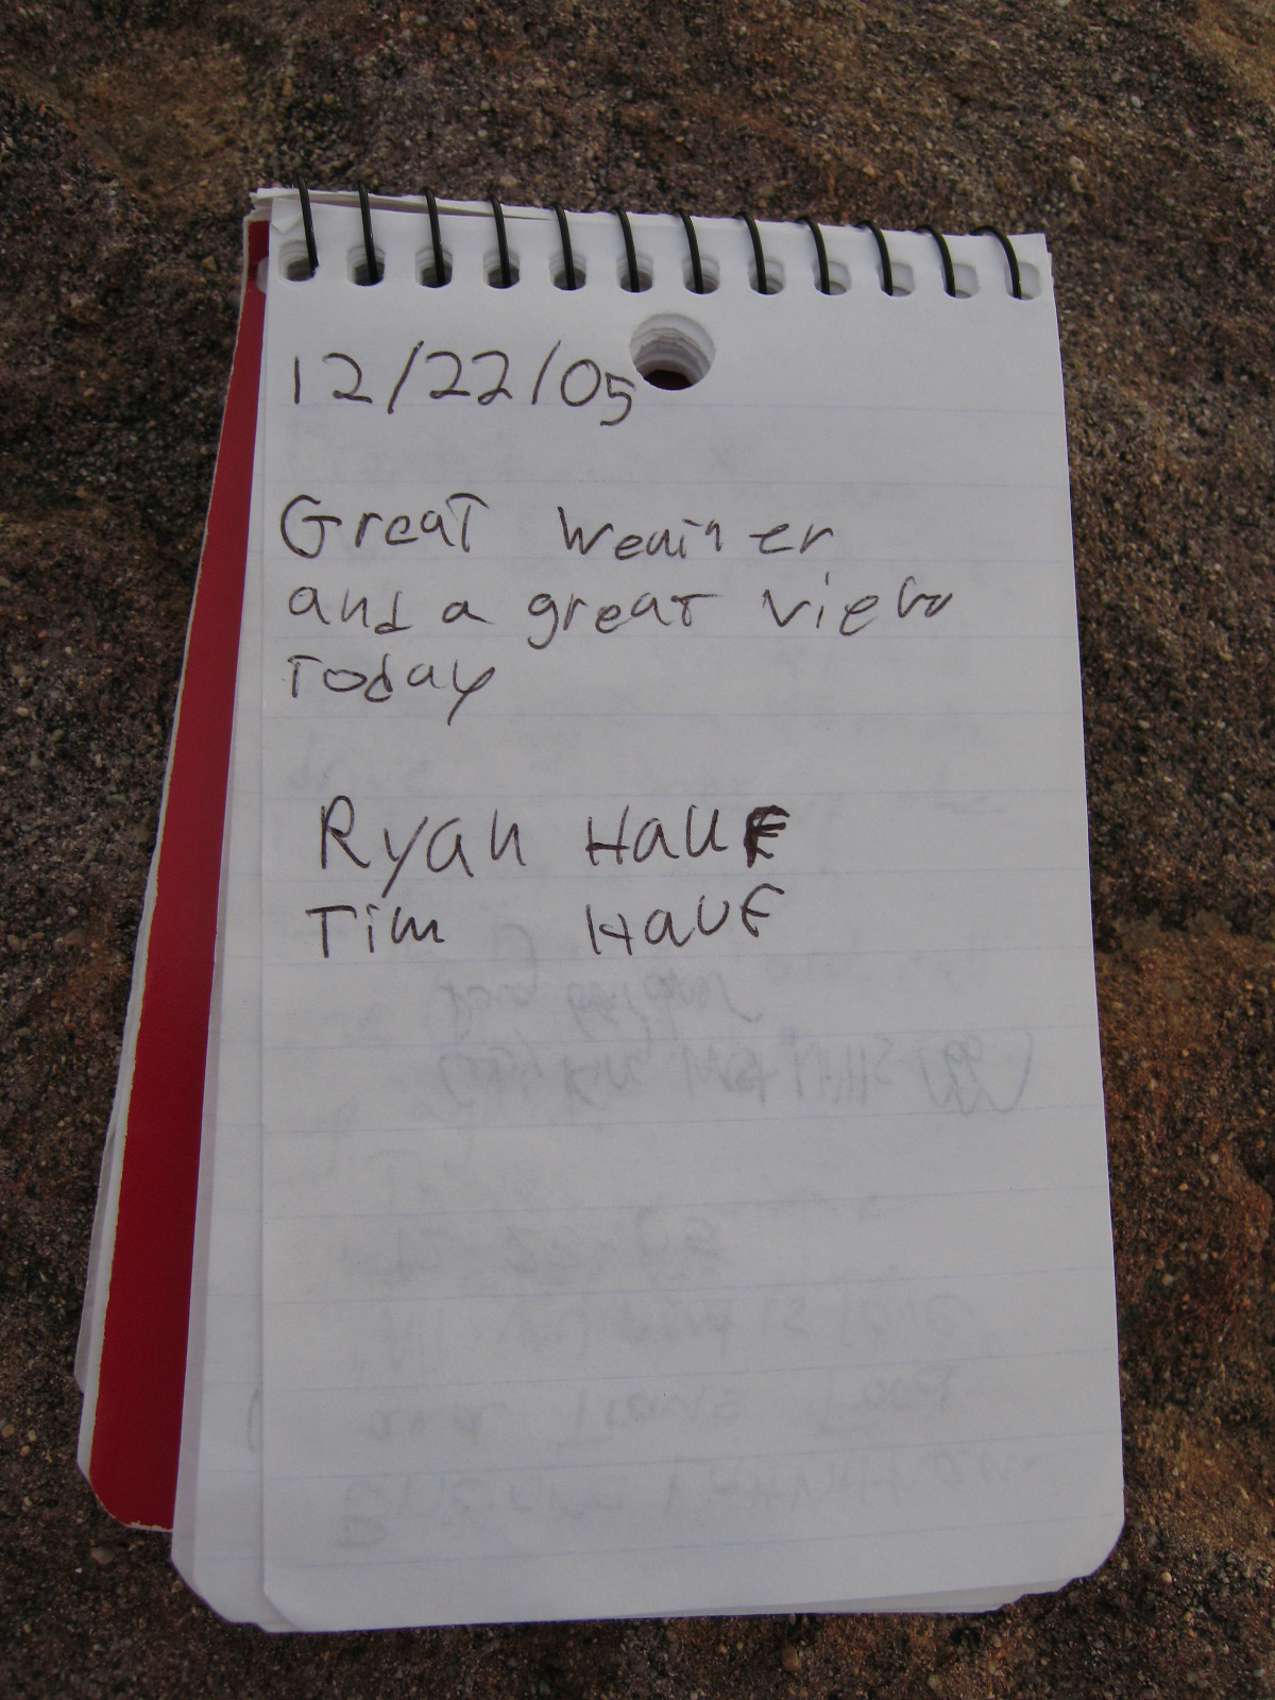 12/22/05
Great Weather
and a great view
Today
Ryan Hauf
Tim Hauf